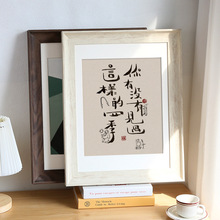 你有没有見過
這樣的四季